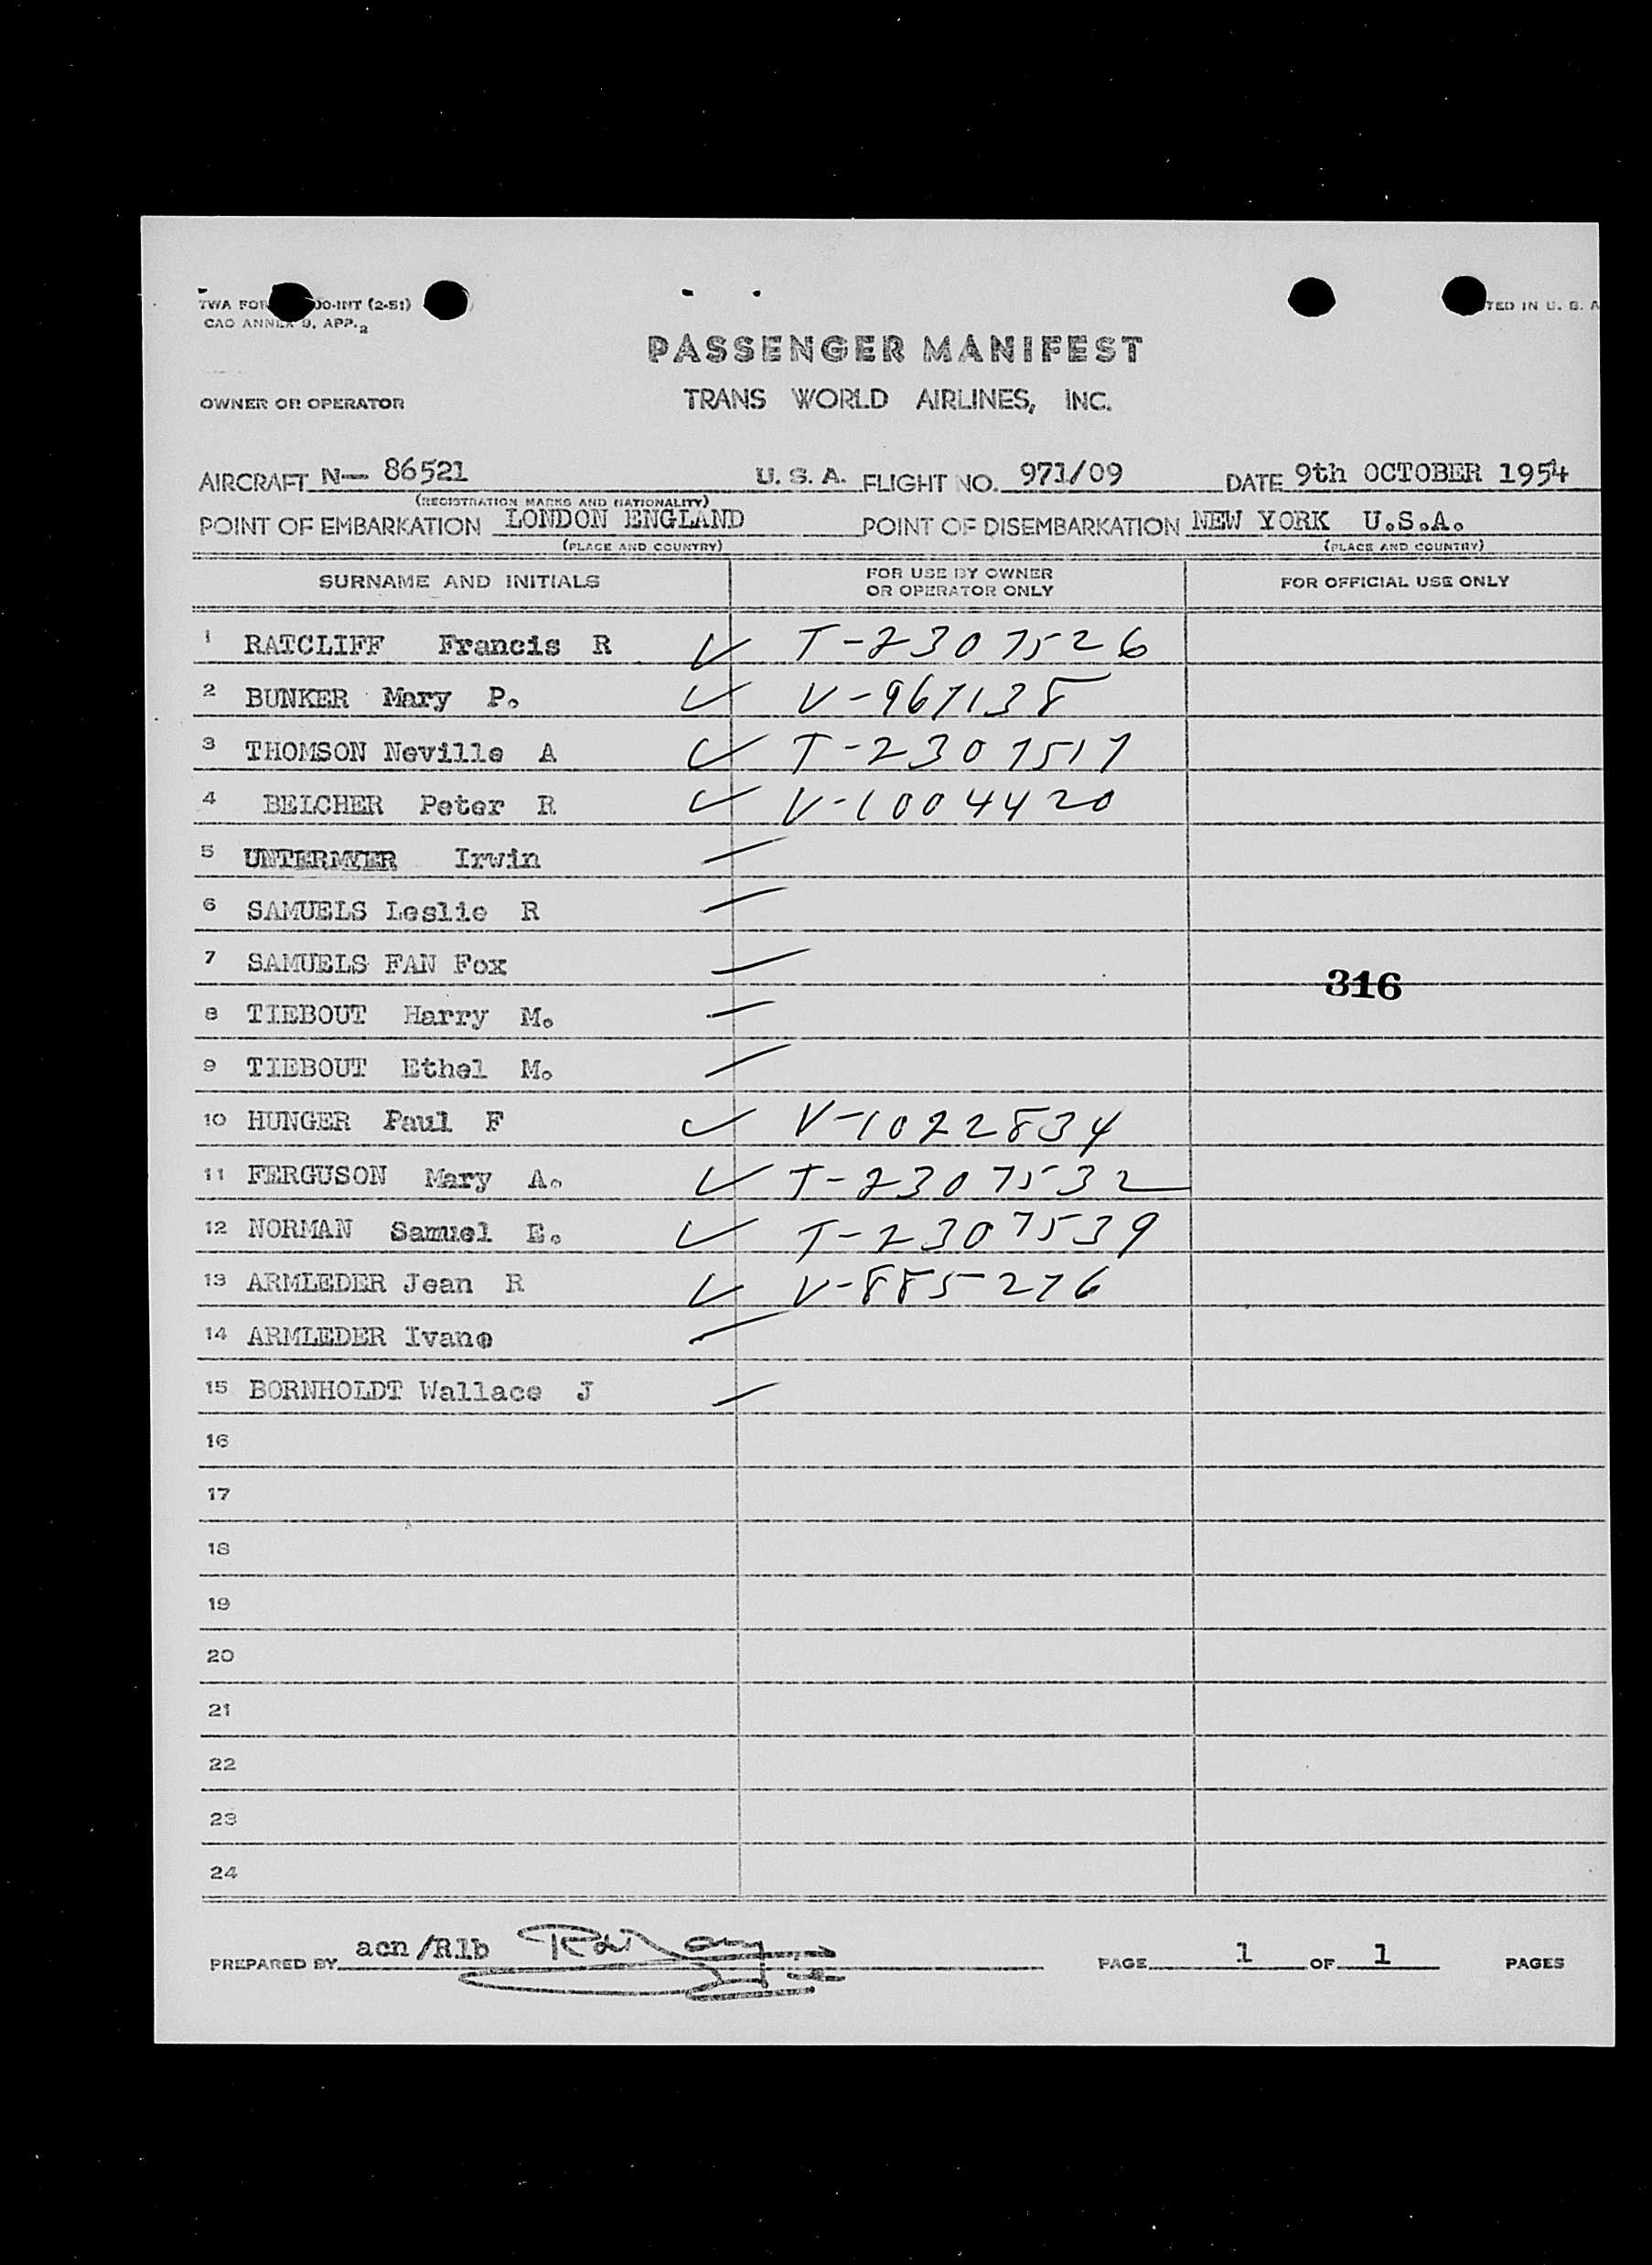 TWA FOR 00-INT (2-51)
TED IN U. S. A
CAO ANNEX 9, APP. 2
PASSENGER MANIFEST
OWNER OR OPERATOR TRANS WORLD AIRLINES, INC.
AIRCRAFT N— 86521 U. S. A. FLIGHT NO. 971/09 DATE 9th OCTOBER 1954
(REGISTRATION MARKS AND NATIONALITY)
POINT OF EMBARKATION LONDON ENGLAND POINT OF DISEMBARKATION NEW YORK U.S.A.
(PLACE AND COUNTRY) (PLACE AND COUNTRY)
SURNAME AND INITIALS FOR USE BY OWNER OR OPERATOR ONLY FOR OFFICIAL USE ONLY
1 RATCLIFF Francis R ✓ T-2307526
2 BUNKER Mary P. ✓ V-967138
3 THOMSON Neville A ✓ T-2307517
4 BELCHER Peter R ✓ V-1004420
5 UNTERMYER Irwin
6 SAMUELS Leslie R
7 SAMUELS FAN Fox
316
8 TIEBOUT Harry M.
9 TIEBOUT Ethel M.
10 HUNGER Paul F ✓ V-1022834
11 FERGUSON Mary A. ✓ T-2307532
12 NORMAN Samuel E. ✓ T-2307539
13 ARMLEDER Jean R ✓ V-885276
14 ARMLEDER Ivane
15 BORNHOLDT Wallace J
16
17
18
19
20
21
22
23
24
PREPARED BY acn/Rlb PAGE 1 OF 1 PAGES